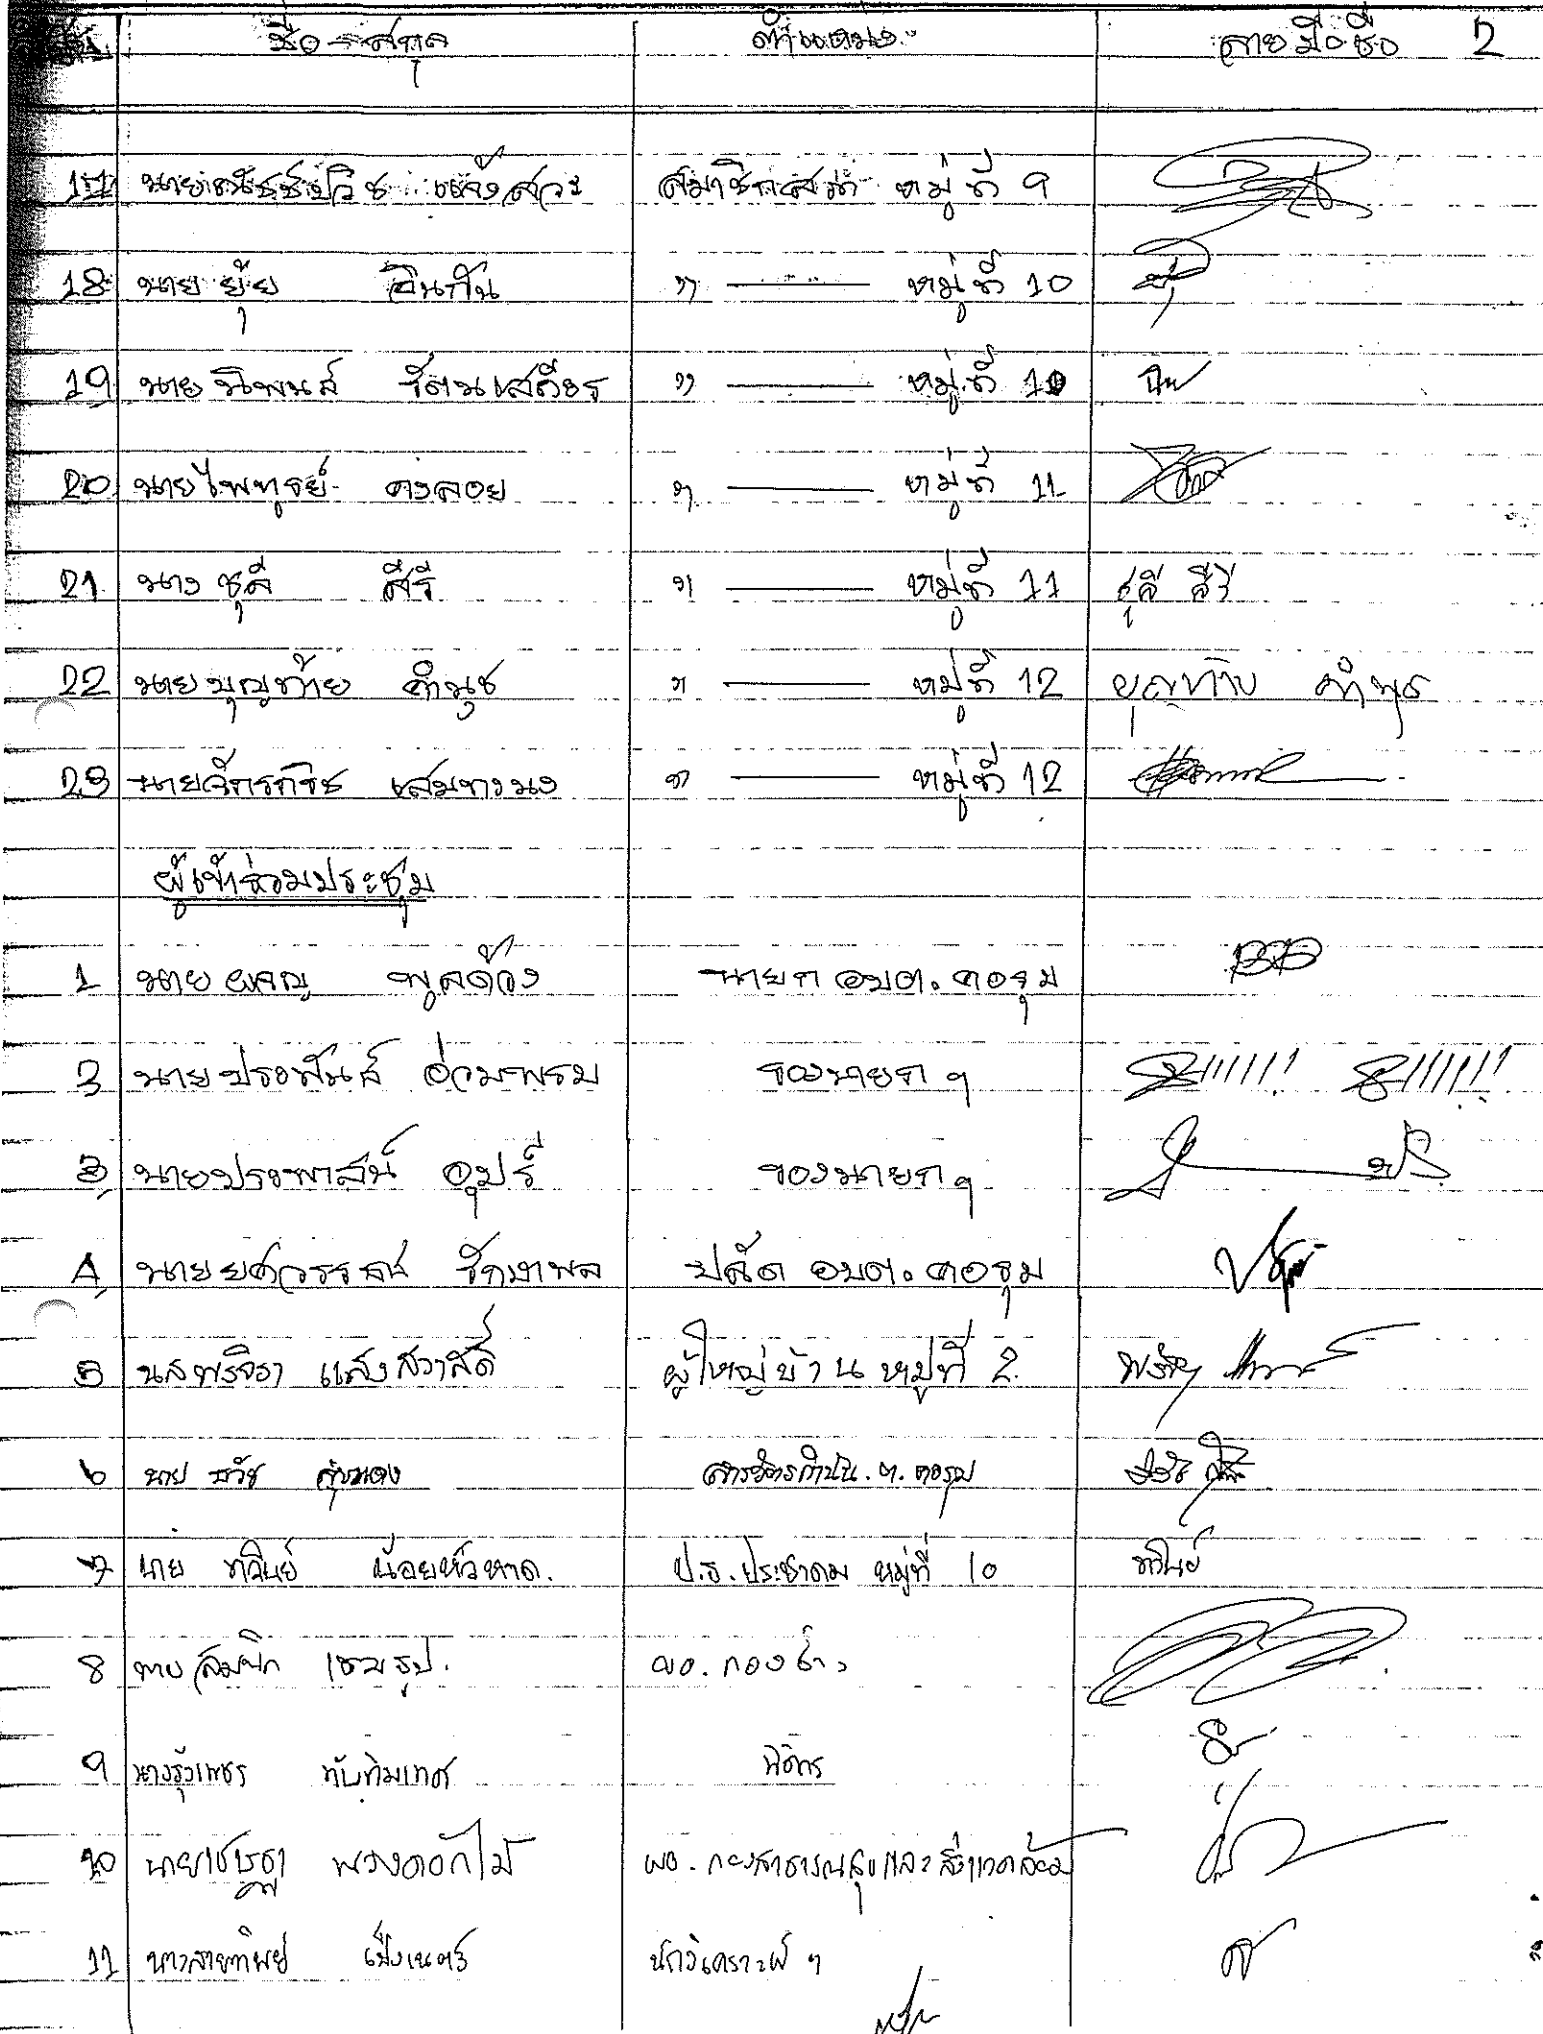 ชื่อ - สกุล ตำแหน่ง ลายมือชื่อ 2
17 แจ้งสว่าง สมาชิกสภา หมู่ที่ 9
18 นายยุ้ย อินทัน " หมู่ที่ 10
19 นายนิพนธ์ รัตนเสถียร " หมู่ที่ 10
20 นายไพฑูรย์ คงลอย " หมู่ที่ 11
21 นางชุลี สีรี " หมู่ที่ 11 ชุลี สีรี
22 นายบุญท้าย คำนุช " หมู่ที่ 12 คำนุช
23 นายจักรกริช " หมู่ที่ 12
ผู้เข้าร่วมประชุม
1 นายผจญ พูลด้วง นายก อบต.คอรุม
2 นายประพันธ์ อ่วมพรม รองนายก ฯ
3 นายประพาสน์ อุปรี รองนายก ฯ
4 นายยศวรรธน์ รักษาพล ปลัด อบต.คอรุม
5 นส.พรจิรา แสงสวาสดิ์ ผู้ใหญ่บ้าน หมู่ที่ 2
6 นาย ธวัช สารวัตรกำนัน.ต.คอรุม
7 นาย ทวินย์ น้อยหัวหาด. ป.ธ.ประชาคม หมู่ที่ 10 ทวินย์
8 นายสมนึก เชยธูป. ผอ.กองช่าง
9 นางรุ้งเพชร ทับทิมเทศ นิติกร
10 นายเชษฐา พวงดอกไม้ ผอ.กองสาธารณสุขและสิ่งแวดล้อม
11 นางสายทิพย์ นักวิเคราะห์ ฯ